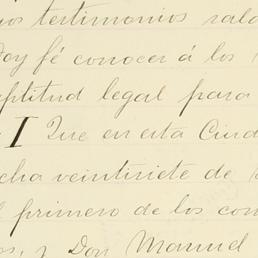 testimonios
Doy fé conocer á los
aptitud legal para
I Que en está Ciud
cha veintisiete de
l primero de los con
os, y Don Manuel